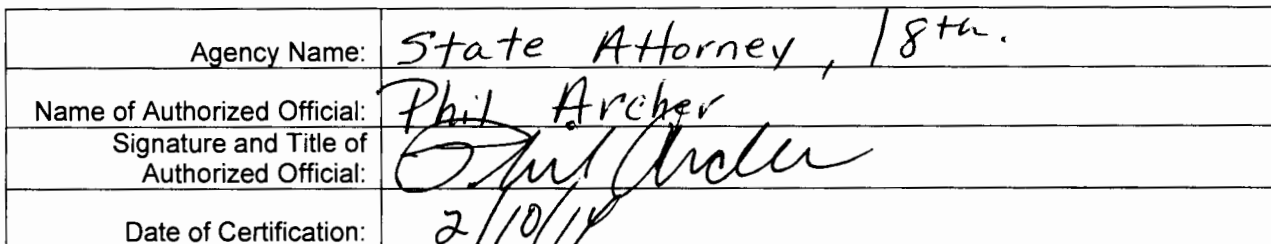 Agency Name: State Attorney, 18th.
Name of Authorized Official: Phil Archer
Signature and Title of
Authorized Official: Phil Archer
Date of Certification: 2/10/14